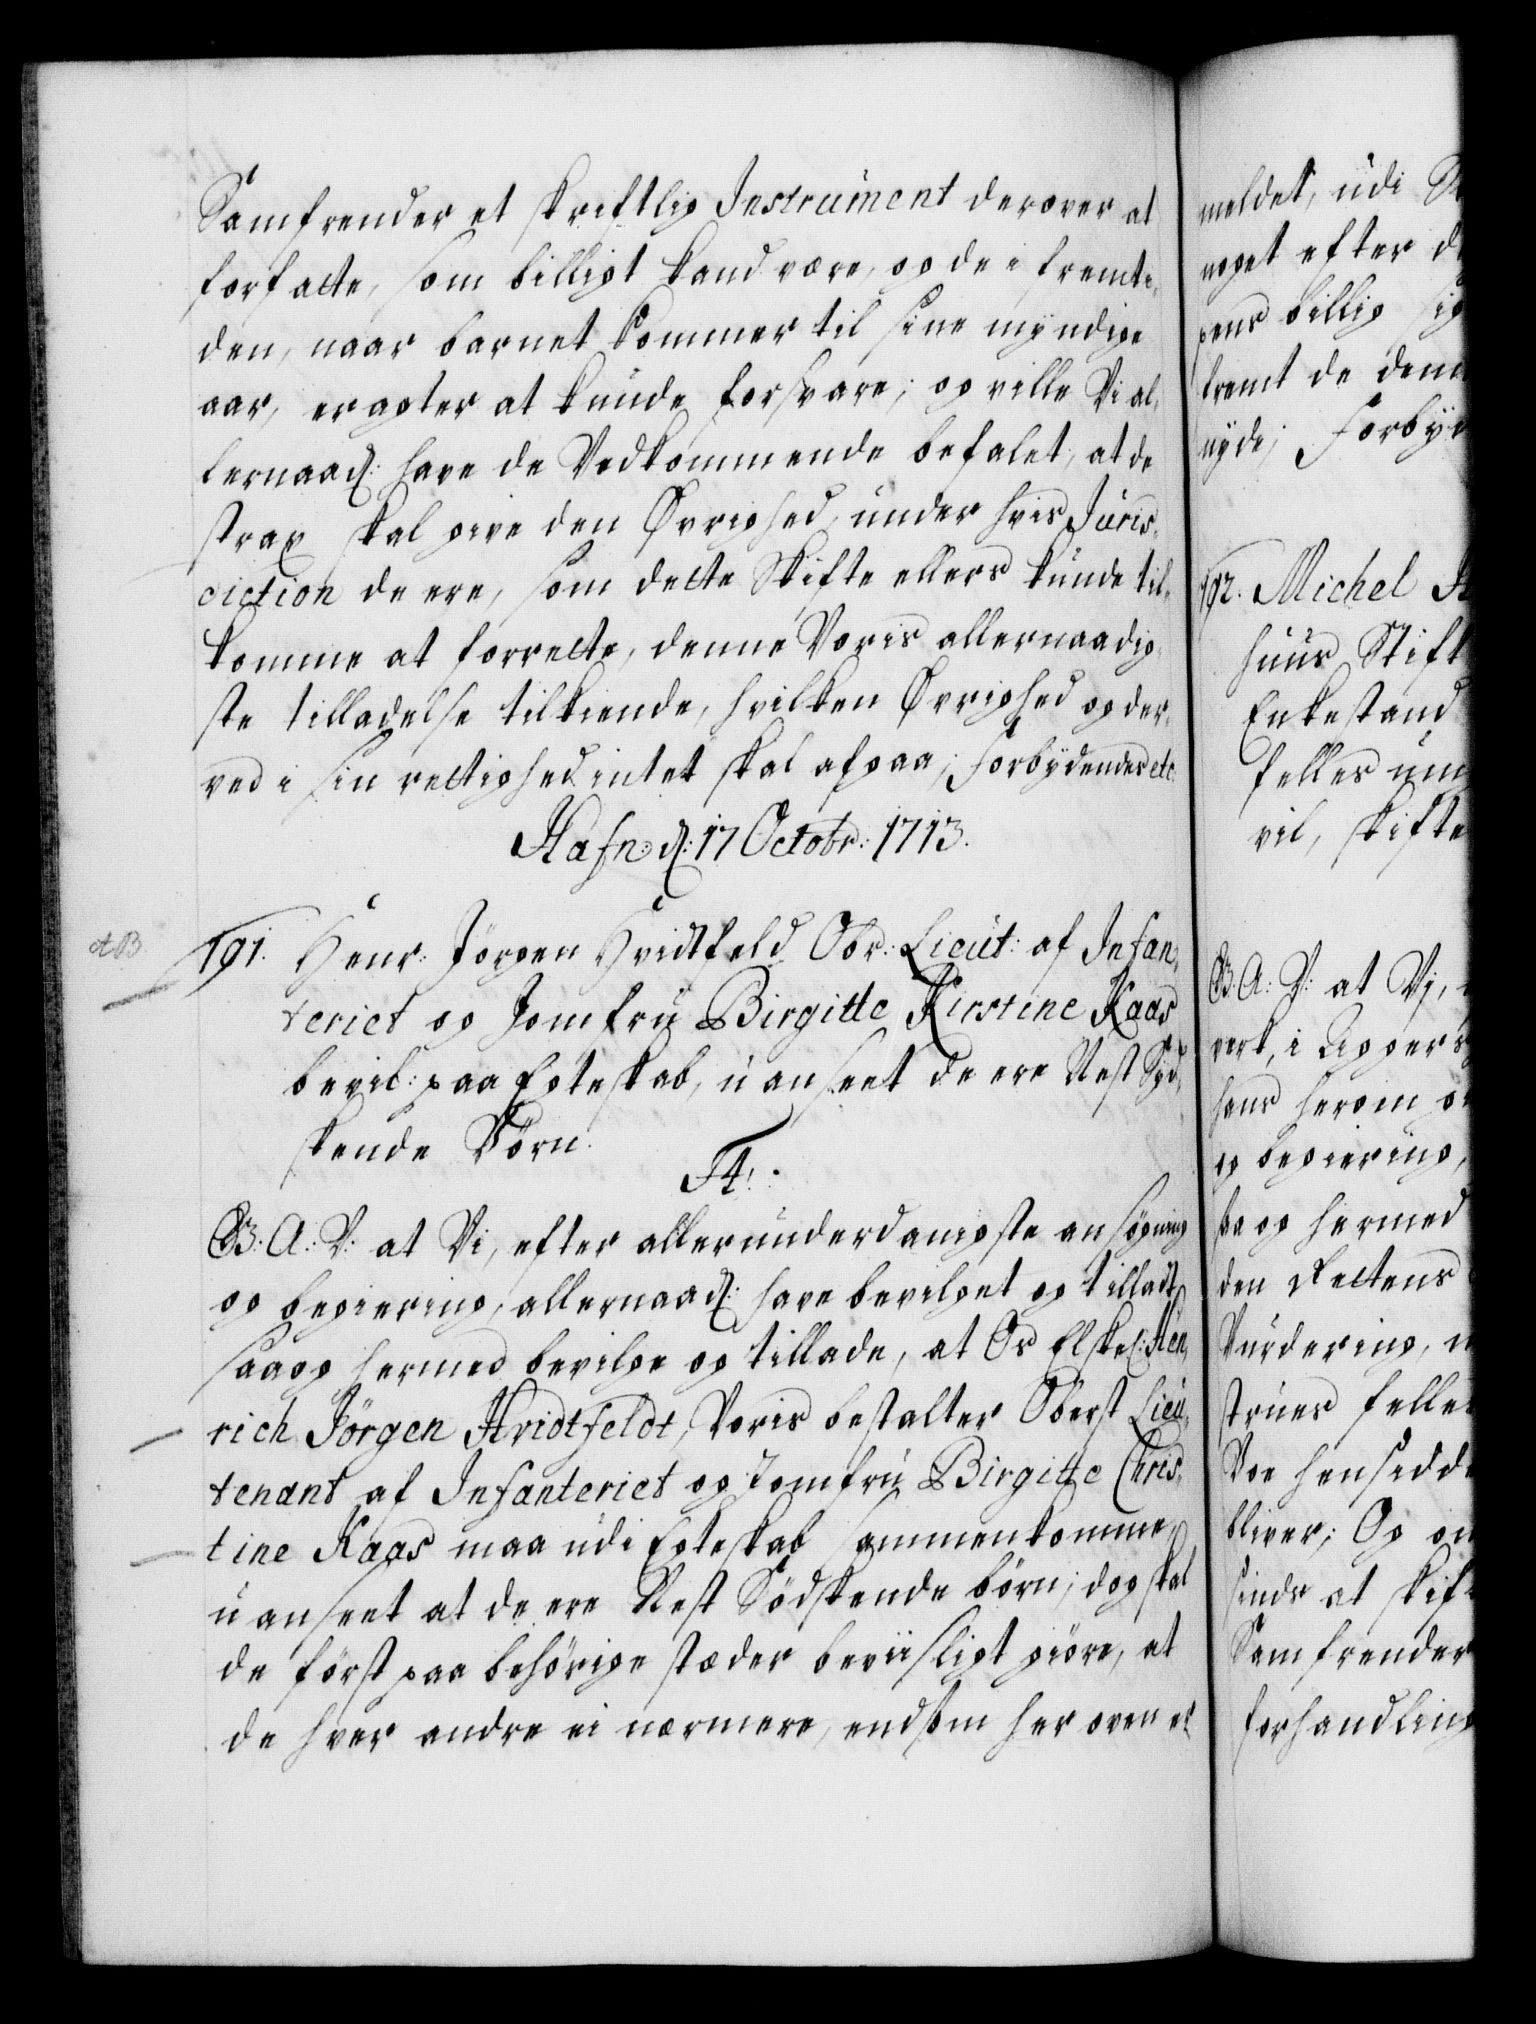 Samfrender et skriftlig Instrument derover at
forfatte, som billigt kand være, og de i fremti-
den, naar barnet kommer til sine myndige
aar, eragter at kunde forsvare; og ville Vi al-
lernaad: have de Vedkommende befalet, at de
strax skal give den Øvrighed, under hvis Juris-
diction de ere, som dette Skifte ellers kunde til-
komme at forrette, denne Voris allernaadig-
ste tilladelse tilkiende, hvilken Øvrighed og der-
ved i sin rettighed intet skal afgaa; Forbydendes etc
Hafn: d: 17 Octobr: 1713.
AB
191. Henr: Jörgen Hvidtfeld Obr: Lieut: af Infan-
teriet og Jomfru Birgitte Kirstine Kaas
bevil: paa Egteskab, uanseet de ere Nest Sød-
skende Børn.
F4.
G. B. A: V: at Vi, efter allerunderdanigste ansøgning
og begiering, allernaad: have bevilget og tilladt,
saa og hermed bevilge og tillade, at Os Elskel: Hen-
rich Jörgen Hvidtfeldt, Voris bestalter Oberst Lieu-
tenant af Infanteriet og Jomfru Birgitte Chris-
tine Kaas maa udi Egteskab sammenkomme,
uanseet at de ere Nest Södskende börn; dog skal
de först paa behörige stæder beviisligt giöre, at
de hver andre ei nærmere, end som her oven er
meldet, udi
noget efter
gens billig sig
fremt de
nyde; Forby
192. Michel
huus Stift
Enkestand
felles
vil, skifte
G. B. A: V: at Vj,
verk, i Agger
hans herom
og begiering,
saa og hermed
den Rettens
Vurdering,
strues felles
Voe hensidde
bliver; Og
sinds at skif
Samfrender
forhandling